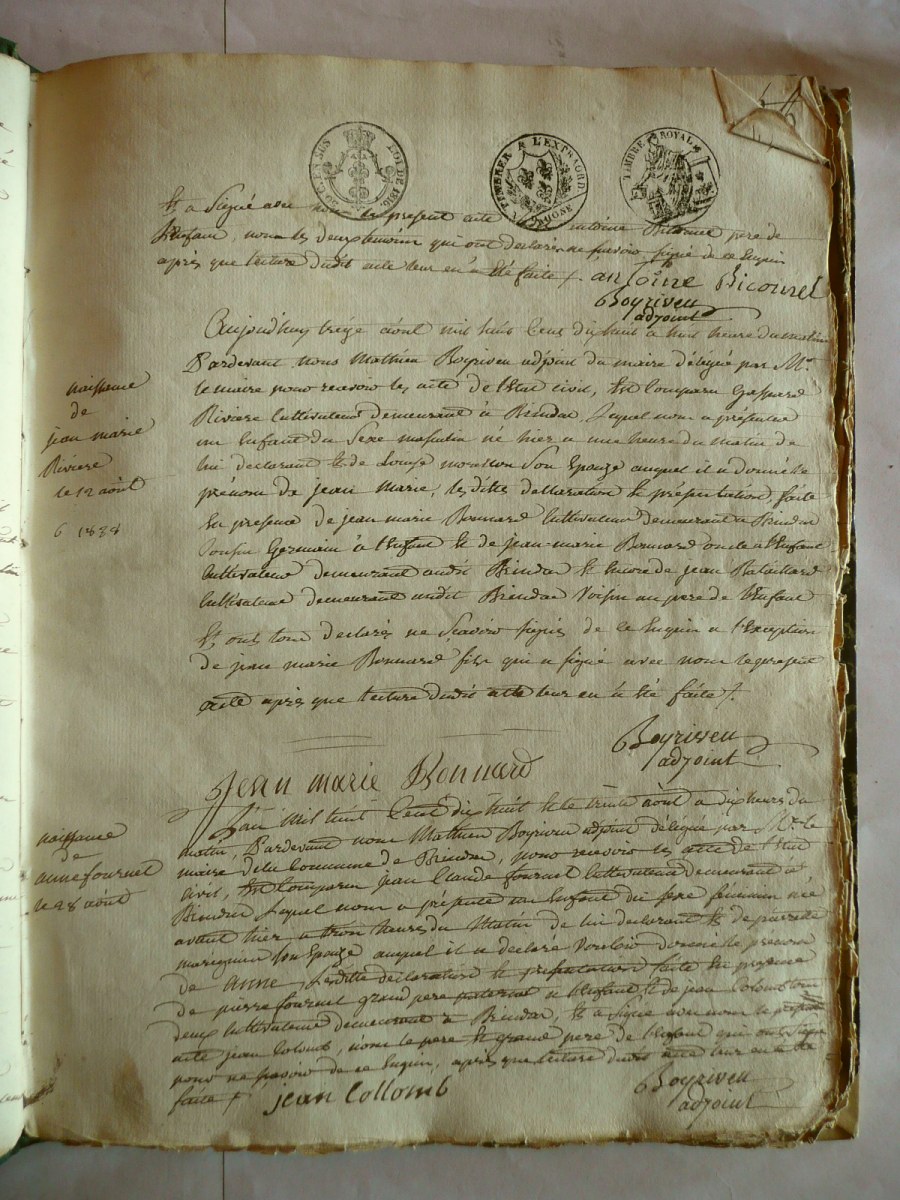 4
POUR CEN. SUS LOI DE 1816
TIMBRER À L'EXTRAORD.
RHONE
TIMBRE ROYAL
Et a Signé avec nous le present acte antoine Bicornel, pere de
l'enfant, non les deux temoins qui ont declarés ne Scavoir signé de ce Enquis
après que lecture dudit acte leur en a été faite /. antoine Bicornel
Boyriven
adjoint
naissance
de
jean marie
Riviere
le 12 août
6 1888
Aujourd'huy treize août mil huit Cent dix huit à huit heure du matin
Pardevant nous Mathieu Boyriven adjoint du maire délégué par Mr.
le maire pour recevoir les acte de l'etat civil, Est Comparu Gaspard
Riviere Cultivateur demeurant à Brindas, Lequel nous a présentée
un Enfant du Sexe masculin né hier a une heure du matin de
lui declarant Et de Louise Son Epouze auquel il a donné le
prénom de jean Marie, les dittes declaration Et présentation, faite
En presence de jean marie Bonnard Cultivateur demeurant a Brindas
Cousin Germain à l'enfant Et de jean-marie Bonnard oncle a l'enfant
Cultivateur demeurant audit Brindas Et Encore de jean Bataillard
Cultivateur demeurant audit Brindas Voisin au pere de l'Enfant
Et ont tous declarés ne Scavoir signés de ce Enquis a l'exception
de jean marie Bonnard fils qui a signé avec nous le present
acte après que lecture dudit acte leur en à été faite /.
Boyriven
adjoint
Jean marie Bonnard
naissance
de
anne fournel
le 28 août
L'an mil huit Cent dix huit Et le trente août a dix heurs du
matin, Pardevant nous Mathieu Boyriven adjoint délégué par Mr. le
maire de la Commune de Brindas, pour recevoir les acte de l'Etat
civil, Est Comparu jean Claude fournel Cultivateur demeurant à
Brindas Lequel nous a présenté un Enfant du sexe féminin née
avant hier a trois heures du Matin de lui declarant Et de pierrette
Son Epouze auquel il a declaré Vouloir donné le prenom
de anne, Lesditte declaration Et presentation faite En presence
de pierre fournel grand pere paternel a l'Enfant Et de jean Colomb tous
deux Cultivateurs demeurant à Brindas, Et a Signé avec nous le present
acte jean Colomb, non le pere Et grand pere de l'Enfant qui
pour ne savoir de ce Enquis, après que lecture dudit acte leur en a été
faite / jean Collomb
Boyriven
adjoint